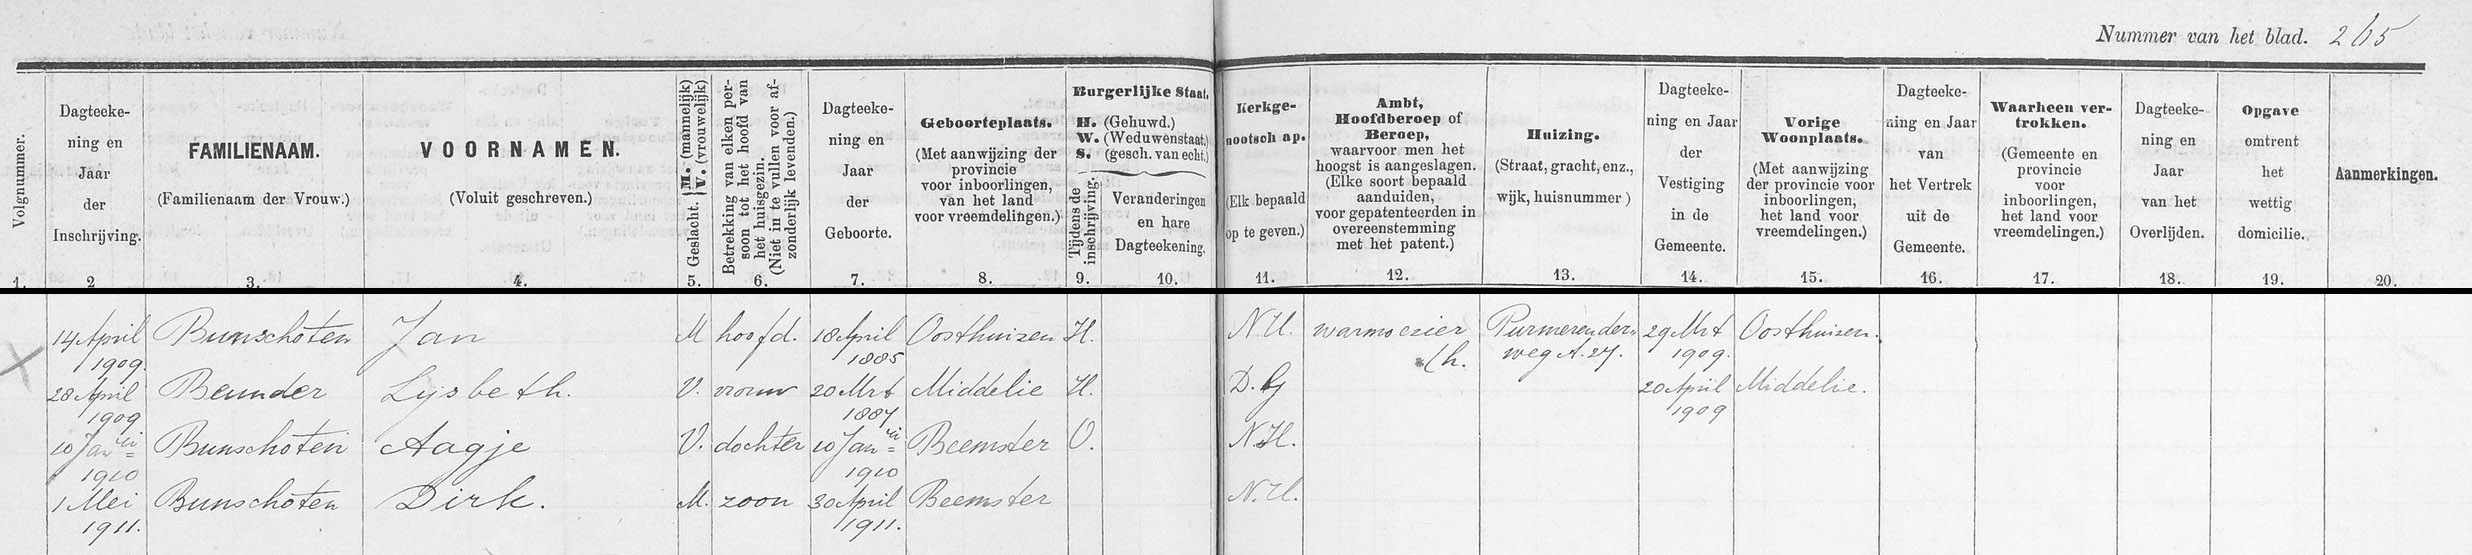 Nummer van het blad. 265
Volgnummer.
1.
Dagteeke-
ning en
Jaar
der
Inschrijving.
2
FAMILIENAAM.
(Familienaam der Vrouw.)
3.
VOORNAMEN.
(Voluit geschreven.)
4.
Geslacht. M. (mannelijk)
V. (vrouwelijk)
5.
Betrekking van elken per-
soon tot het hoofd van
het huisgezin.
(Niet in te vullen voor af-
zonderlijk levenden.)
6.
Dagteeke-
ning en
Jaar
der
Geboorte.
7.
Geboorteplaats.
(Met aanwijzing der
provincie
voor inboorlingen,
van het land
voor vreemdelingen.)
8.
Burgerlijke Staat.
H. (Gehuwd.)
W. (Weduwenstaat.)
S. (gesch. van echt.)
Tijdens de
inschrijving.
9.
Veranderingen
en hare
Dagteekening.
10.
Kerkge-
nootsch ap.
(Elk bepaald
op te geven.)
11.
Ambt,
Hoofdberoep of
Beroep,
waarvoor men het
hoogst is aangeslagen.
(Elke soort bepaald
aanduiden,
voor gepatenteerden in
overeenstemming
met het patent.)
12.
Huizing.
(Straat, gracht, enz.,
wijk, huisnummer)
13.
Dagteeke-
ning en Jaar
der
Vestiging
in de
Gemeente.
14.
Vorige
Woonplaats.
(Met aanwijzing
der provincie voor
inboorlingen,
het land voor
vreemdelingen.)
15.
Dagteeke-
ning en Jaar
van
het Vertrek
uit de
Gemeente.
16.
Waarheen ver-
trokken.
(Gemeente en
provincie
voor
inboorlingen,
het land voor
vreemdelingen.)
17.
Dagteeke-
ning en
Jaar
van het
Overlijden.
18.
Opgave
omtrent
het
wettig
domicilie.
19.
Aanmerkingen.
20.
14 April Bunschoten Jan M hoofd. 18 April Oosthuizen H. N.H. warmoezier Purmerender- 29 Mrt Oosthuizen.
1909. 1885 (h. weg A. 27. 1909.
28 April Beunder Lijsbeth. V. vrouw 20 Mrt Middelie H. D.G 20 April Middelie.
1909 1887 1909
10 Januari Bunschoten Aagje V. dochter 10 Januari Beemster O. N.H.
1910 1910
1 Mei Bunschoten Dirk. M. zoon 30 April Beemster N.H.
1911. 1911.